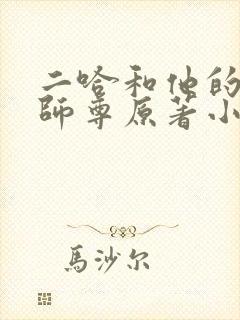 二哈和他的
師尊原著小
馬沙尔